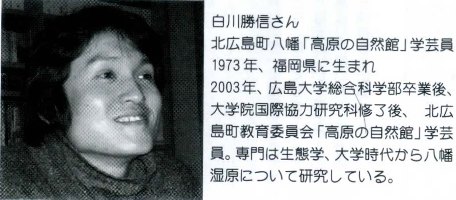 白川勝信さん
北広島町八幡「高原の自然館」学芸員
1973年、福岡県に生まれ
2003年、広島大学総合科学部卒業後、
大学院国際協力研究科修了後、 北広
島町教育委員会「高原の自然館」学芸
員。専門は生態学、大学時代から八幡
湿原について研究している。